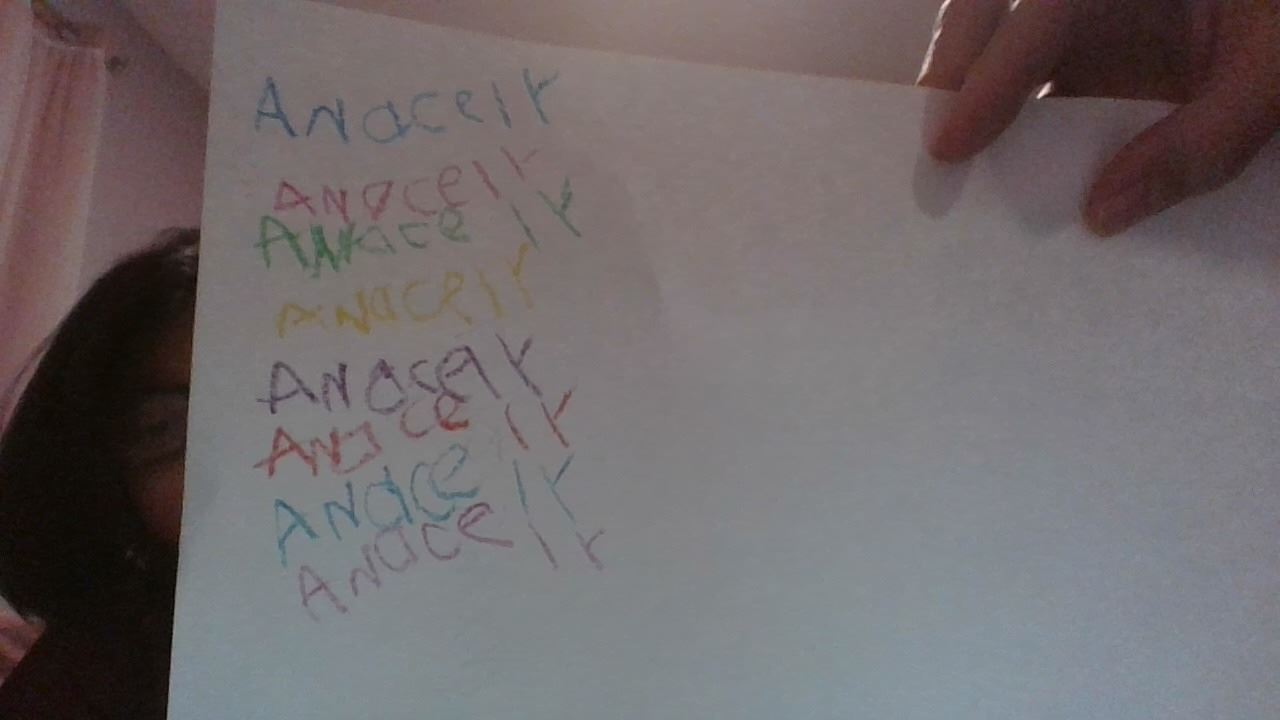 Anacely
Anacely
Anacely
Anacely
Anacely
Anacely
Anacely
Anacely